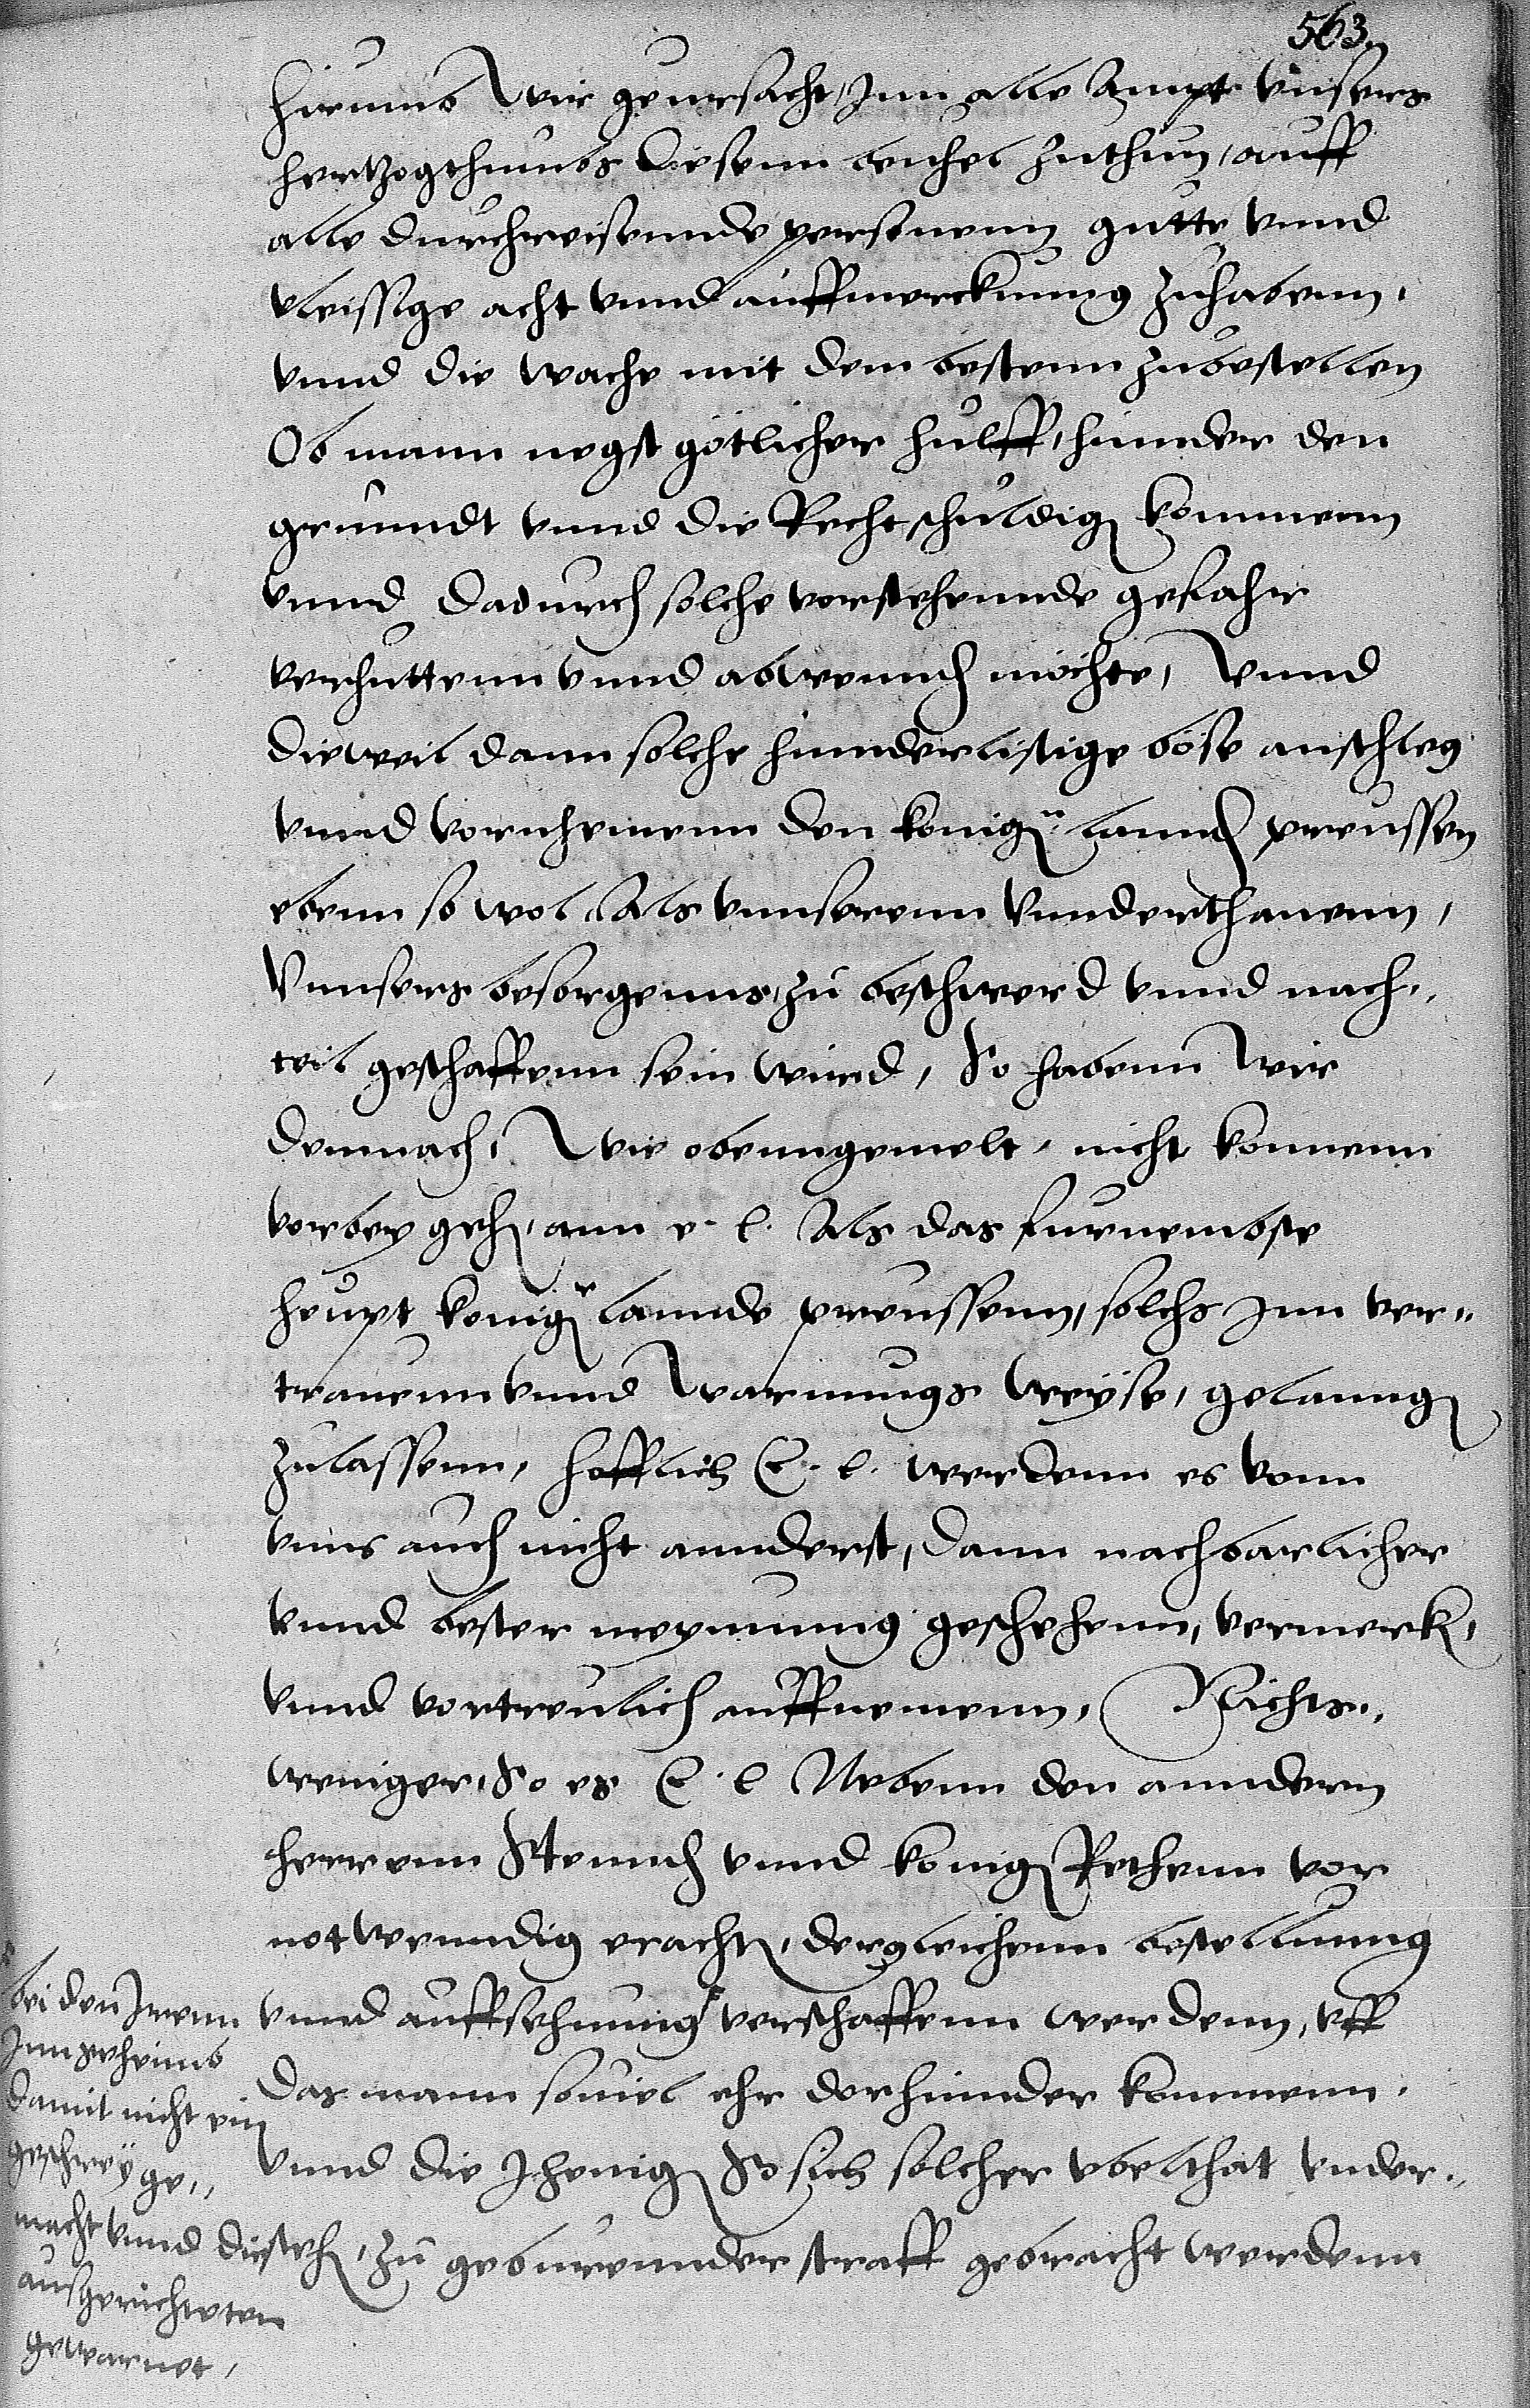 563
hirumb Wir geursacht, Inn alle Ampt unsers
hertzogthumbs diesenn beuhel zuthun, auff
alle durchreisennde personenn gutte vnnd
vleissige acht vnnd auffmerckunng zuhabenn,
vnnd die wache mit dem bestenn zubestellen
Ob mann negst gotlicher hulff, hinnder den
grunndt vnnd die Recht schuldig kommenn
vnnd dadurch solche vorstehennde gefahr
verhuttenn vnnd abwennden mochte, Vnnd
dieweil dann solche hinnderlistige bose anschleg
vnnd vornhemenn den konig:n lannden preussen
ebenn so wol, Als vnnserenn vnnderthanenn,
Vnnsers besorgenns, zu beschwerd vnnd nach„
teil geschaffenn sein wurd, So habenn Wir
demnach, Wie obenngemelt, nicht konnenn
vorbey gehen, ann e. l. Als das furnembste
heupt konig:r lannde preussenn, solchs Inn ver„
trauenn vnnd Warnungs weyse, gelanngen
zulassenn, hofflich E. l. werdenn es vonn
vnns auch nicht annderst, dann nachbarlicher
vnnd bester meynunng geschehenn, vermercken,
vnnd vortreulich auffnemenn, Nichts„
weniger, So es E. l Nebenn den anndern
herrenn Stennden vnnd konig: Rethenn vor
notwenndig erachten, dergleichenn bestellunng
vnnd auffsehunng verschaffenn werdenn, vff
das mann souiel ehr derhinnder kommenn,
vnnd die Jhenigen So sich solcher vbelthat vnder„
stehen, zu geburennder straff gebracht werdenn
bei den Irenn
Inn geheimb
damit nicht ein
geschrey ge„
macht vnnd die
gewarnet,